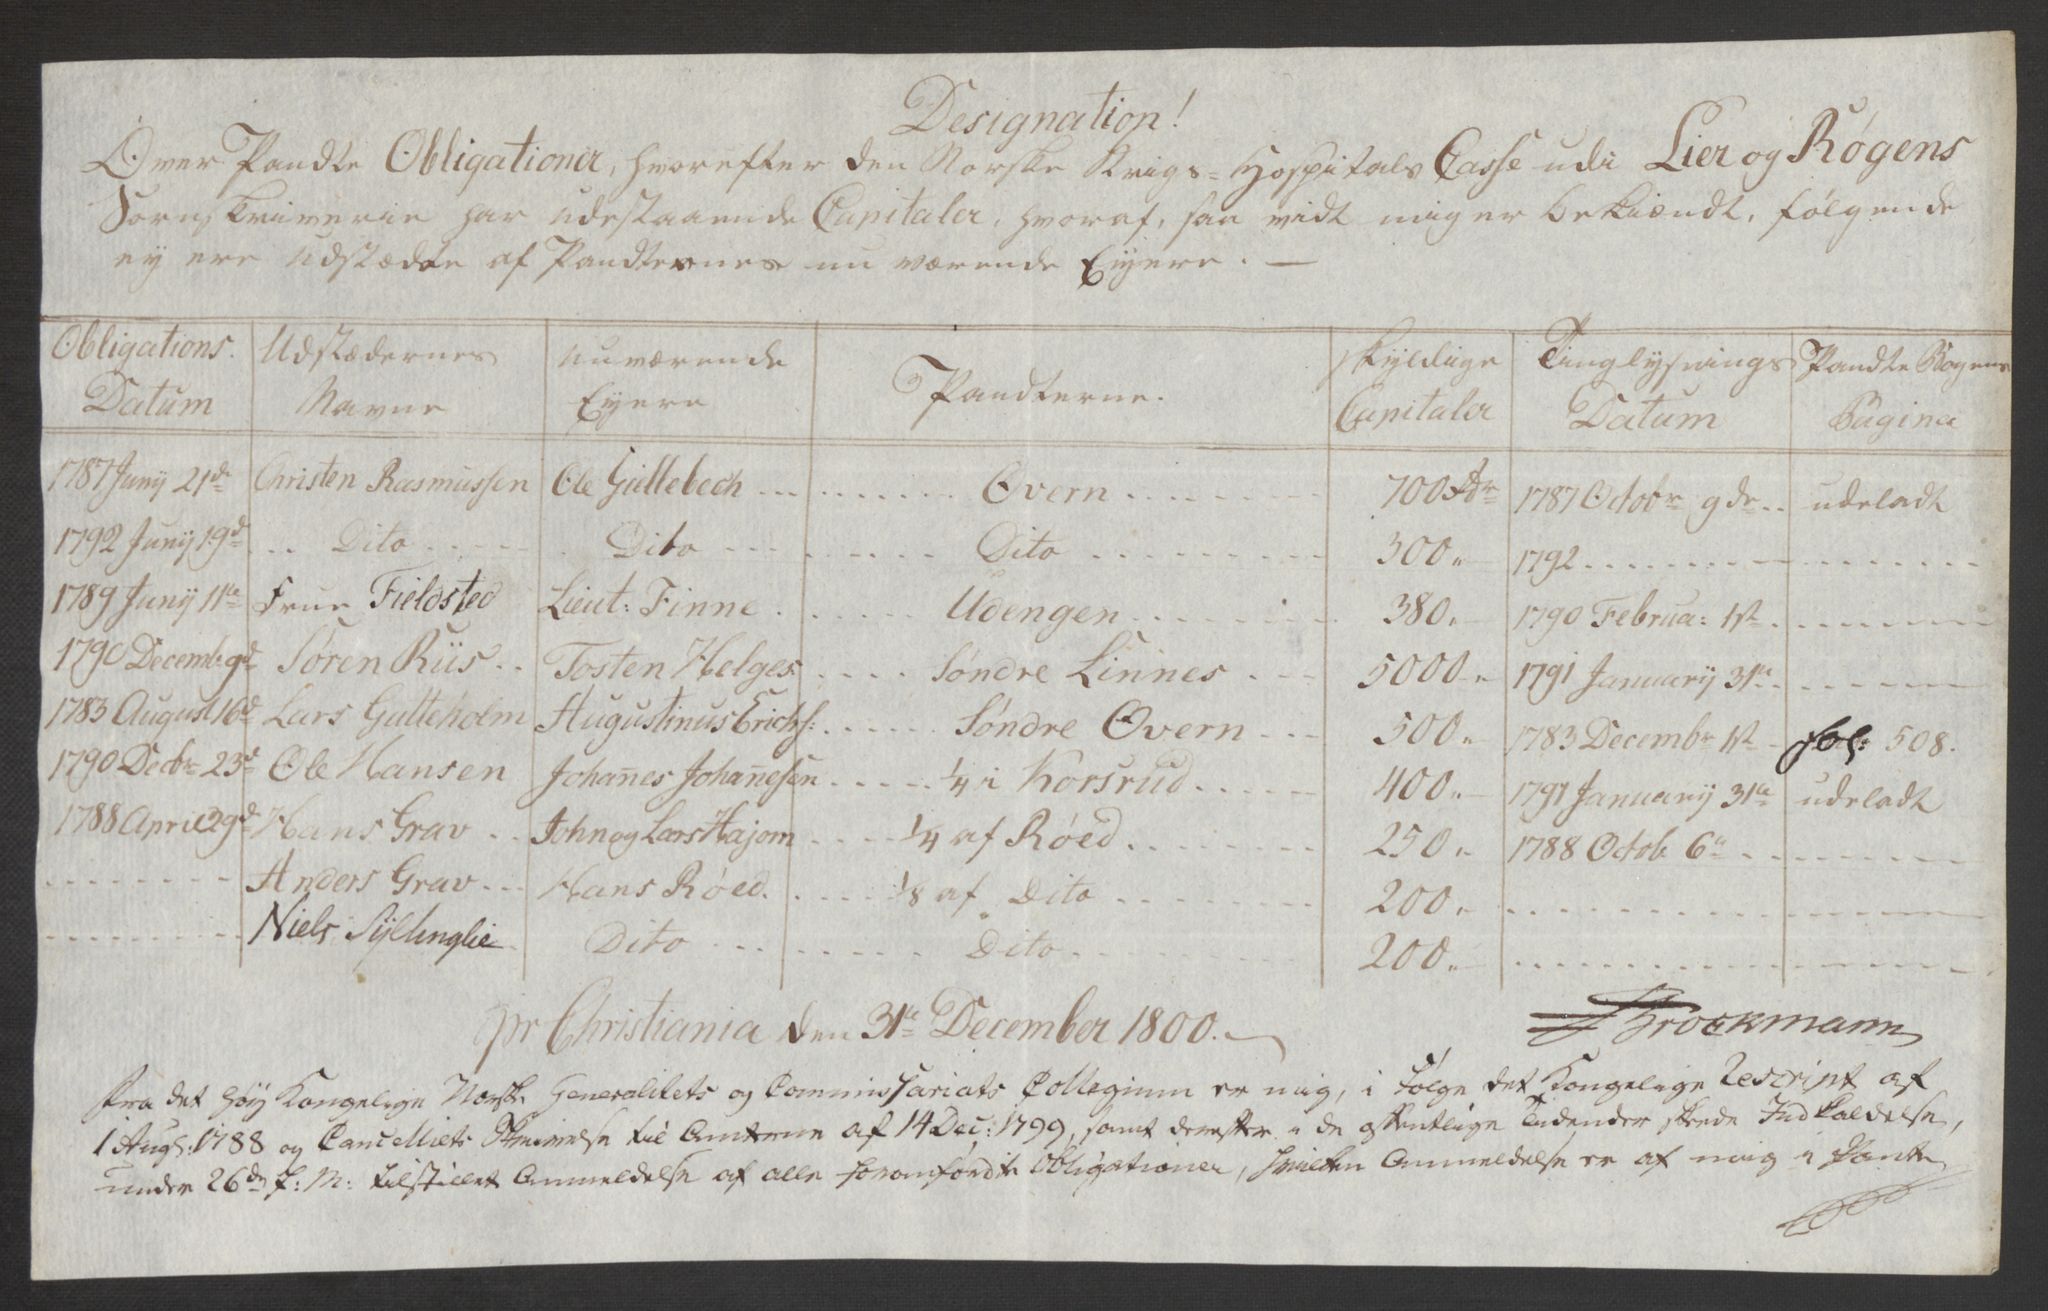 Designation!
Over Pandte Obligationer, hvorefter den Norske Krigs-Hospitals Casse udi Lier og Røgens
Sorenskriverie har udestaaende Capitaler, hvoraf, saa vidt mig er bekiændt, følgende
ey ere udstædte af Pandternes nu værende Eyere. —
Obligations. Datum | Udstædernes Navne | nuværende Eyere | Pandterne. | skyldige Capitaler | Tinglysnings Datum | Pandte Bogens Pagina
1787 Junij 21de Christen Rasmussen Ole Gullebech Overn 700 Rdr 1787 Octobr 9de udeladt
1792 Junij 19d Dito Dito Dito 300 1792
1789 Junij 11te Frue Fieldsted Lieut: Finne Udengen 380 1790 Februa: 1st
1790 Decemb 9d Søren Riis Tosten Helges: Søndre Linnes 5000 1791 January 31te
1783 August 16d Lars Gulteholm Augustinus Erichs: Søndre Overn 500 1783 Decembr 1st fol: 508.
1790 Decbr 23d Ole Hansen Johañes Johañesen 1/4 i Korsrud 400 1791 January 31te udeladt
1788 April 29d Hans Grav John og Lars Hajom 1/4 af Røed 250 1788 Octob 6te
Anders Grav Hans Røed. 1/8 af Dito 200
Niels Sÿllinglie Dito Dito 200
pr Christiania den 31te December 1800.
Brockmann
Fra det høy Kongelige Norske Generalitets og Commissariats Collegium er mig, i Følge det Kongelige Rescript af
1 Aug: 1788 og Cancelliets Skrivelse til Amtene af 14 Dec: 1799, samt derefter i de offentlige Tidender skeede Indkaldelse,
under 26de f: M: tilstillet Anmeldelse af alle foranførdte Obligationer, hvilken Anmeldelse er af mig i Pante